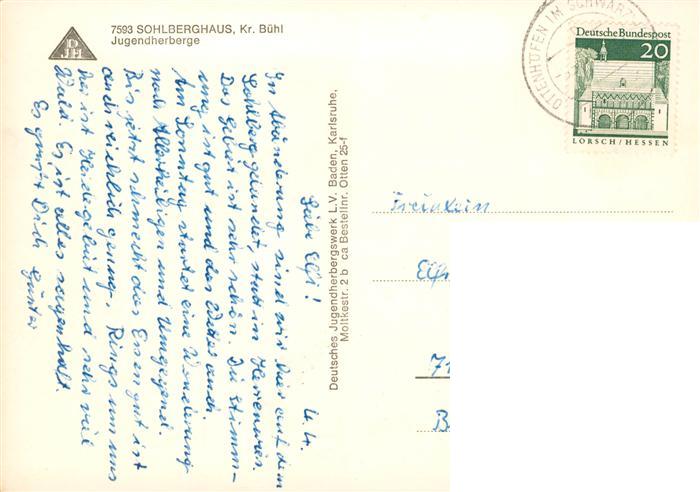 7593 SOHLBERGHAUS, Kr. Bühl
Jugendherberge
DJH
OTTENHÖFEN IM SCHWARZ
Deutsche Bundespost
20
LORSCH/HESSEN
4.4.
Liebe Elfi!
In Abänderung sind wir hier auf dem
Sohlberg gelandet, statt im Herrenwies.
Das Gebiet ist sehr schön. Die Stimm-
ung ist gut und das Wetter auch.
Am Sonntag startet eine Wanderung
nach Allerheiligen und Umgegend.
Bis jetzt schmeckt das Essen gut ist
auch reichlich genug. Rings um uns
her ist Heidegebiet und sehr viel
Wald. Es ist alles sagenhaft.
Es grüsst Dich Günter
Deutsches Jugendherbergswerk L.V. Baden, Karlsruhe,
Moltkestr. 2 b ca Bestellnr. Otten 25-f
Fräulein
Elfi
71
B